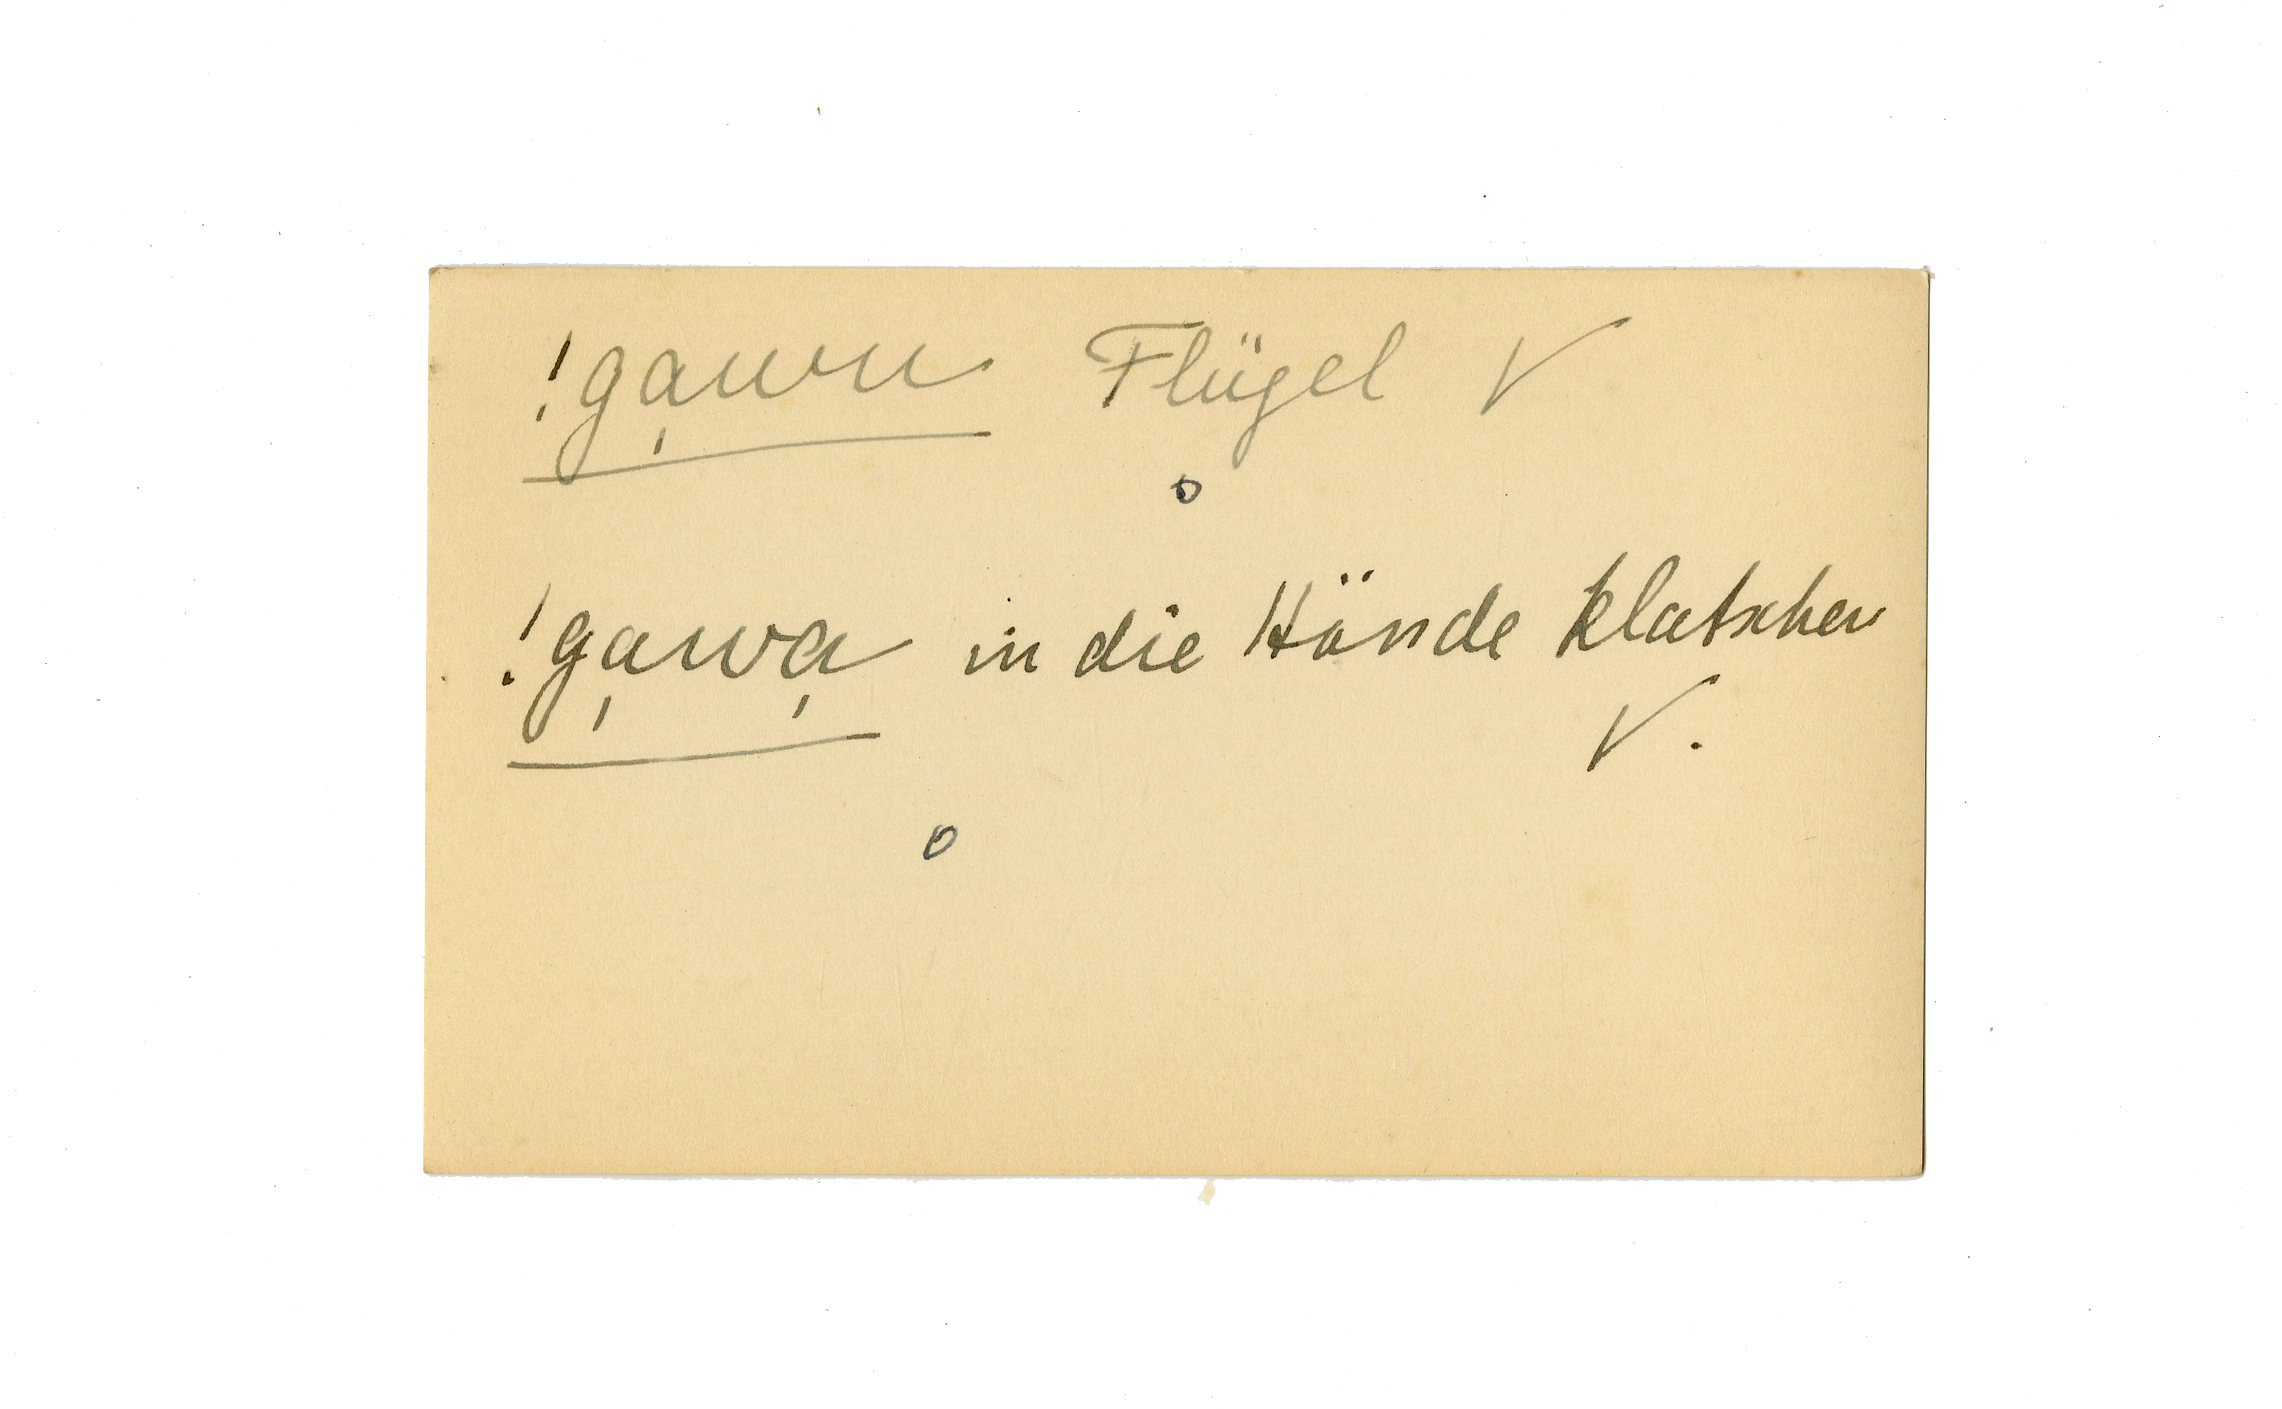 !ga̩wu Flügel V
o
!ga̩wa̩ in die Hände klatschen
V.
o